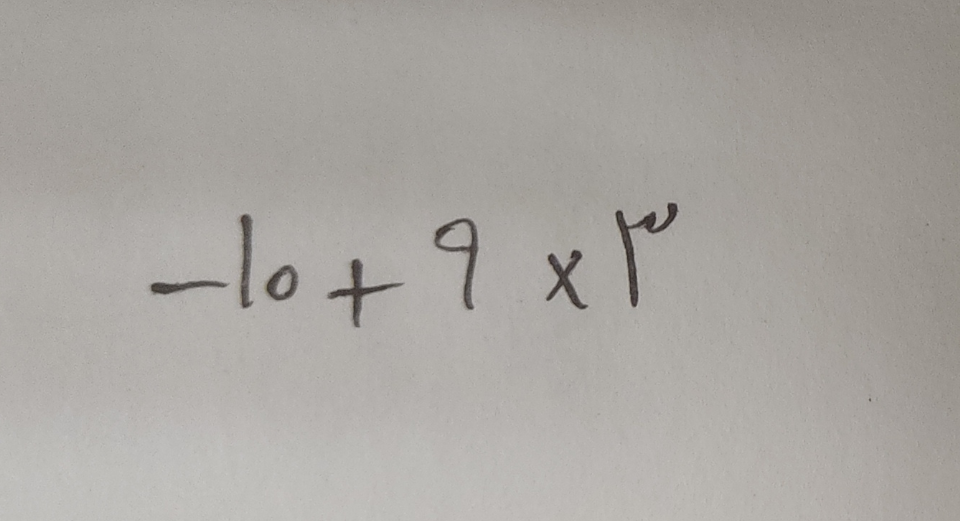 -۱۰ + ۹ × ۳